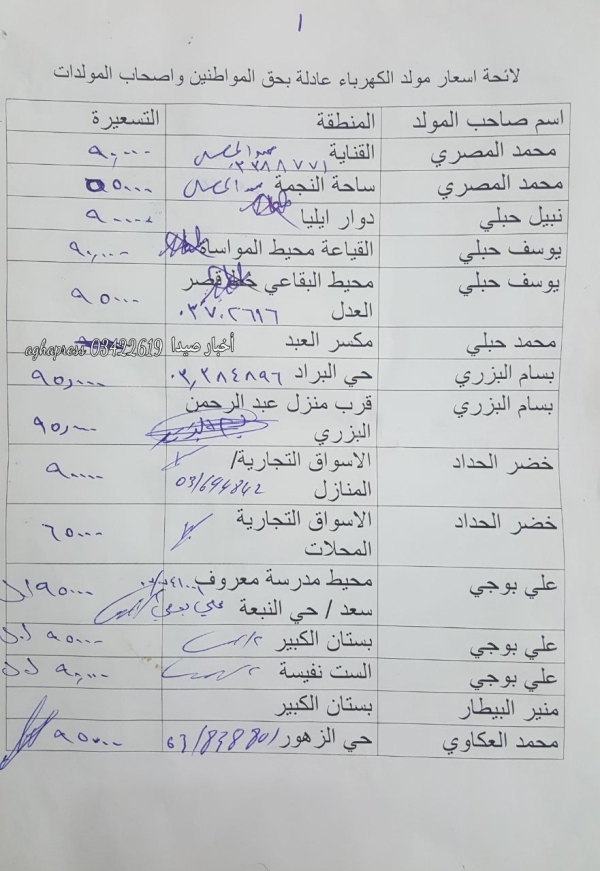 ١
لائحة اسعار مولد الكهرباء عادلة بحق المواطنين واصحاب المولدات
اسم صاحب المولد المنطقة التسعيرة
محمد المصري القناية ٩٠,٠٠٠
محمد المصري ساحة النجمة
نبيل حبلي دوار ايليا ٩٠٠٠٠
يوسف حبلي القياعة محيط المواساة ٩٠,٠٠٠
يوسف حبلي محيط البقاعي قصر ٩٥٠٠٠
العدل ٠٣٧٠٢٦٩٦
محمد حبلي مكسر العبد
أخبار صيدا aghapress 03422619
بسام البزري حي البراد ٠٣,٢٨٤٨٩٦ ٩٥,٠٠٠
بسام البزري قرب منزل عبد الرحمن ٩٥,٠٠٠
البزري
خضر الحداد الاسواق التجارية/ ٩٠٠٠٠
المنازل 03/694842
خضر الحداد الاسواق التجارية ٦٥٠٠٠
المحلات
علي بوجي محيط مدرسة معروف ٩٥٠٠٠ ل.ل
سعد / حي النبعة علي بوجي
علي بوجي بستان الكبير ٩٥٠٠٠ ل.ل
علي بوجي الست نفيسة ٩٠,٠٠٠ ل.ل
منير البيطار بستان الكبير
محمد العكاوي حي الزهور 03/838801 ٩٥٠٠٠